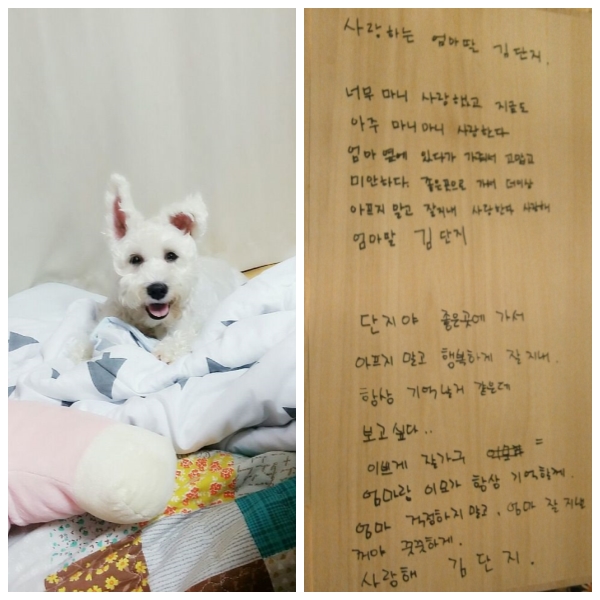 사랑하는 엄마딸 김단지.
너무 마니 사랑했고 지금도
아주 마니마니 사랑한다
엄마 옆에 있다가 가줘서 고맙고
미안하다. 좋은곳으로 가서 더이상
아프지 말고 잘지내 사랑한다 사랑해
엄마딸 김단지
단지야 좋은곳에 가서
아프지 말고 행복하게 잘 지내.
항상 기억날거 같은데
보고싶다..
이쁘게 잘가구
엄마랑 이모가 항상 기억할게.
엄마 걱정하지말고, 엄마 잘 지낼
꺼야 꿋꿋하게.
사랑해 김단지.